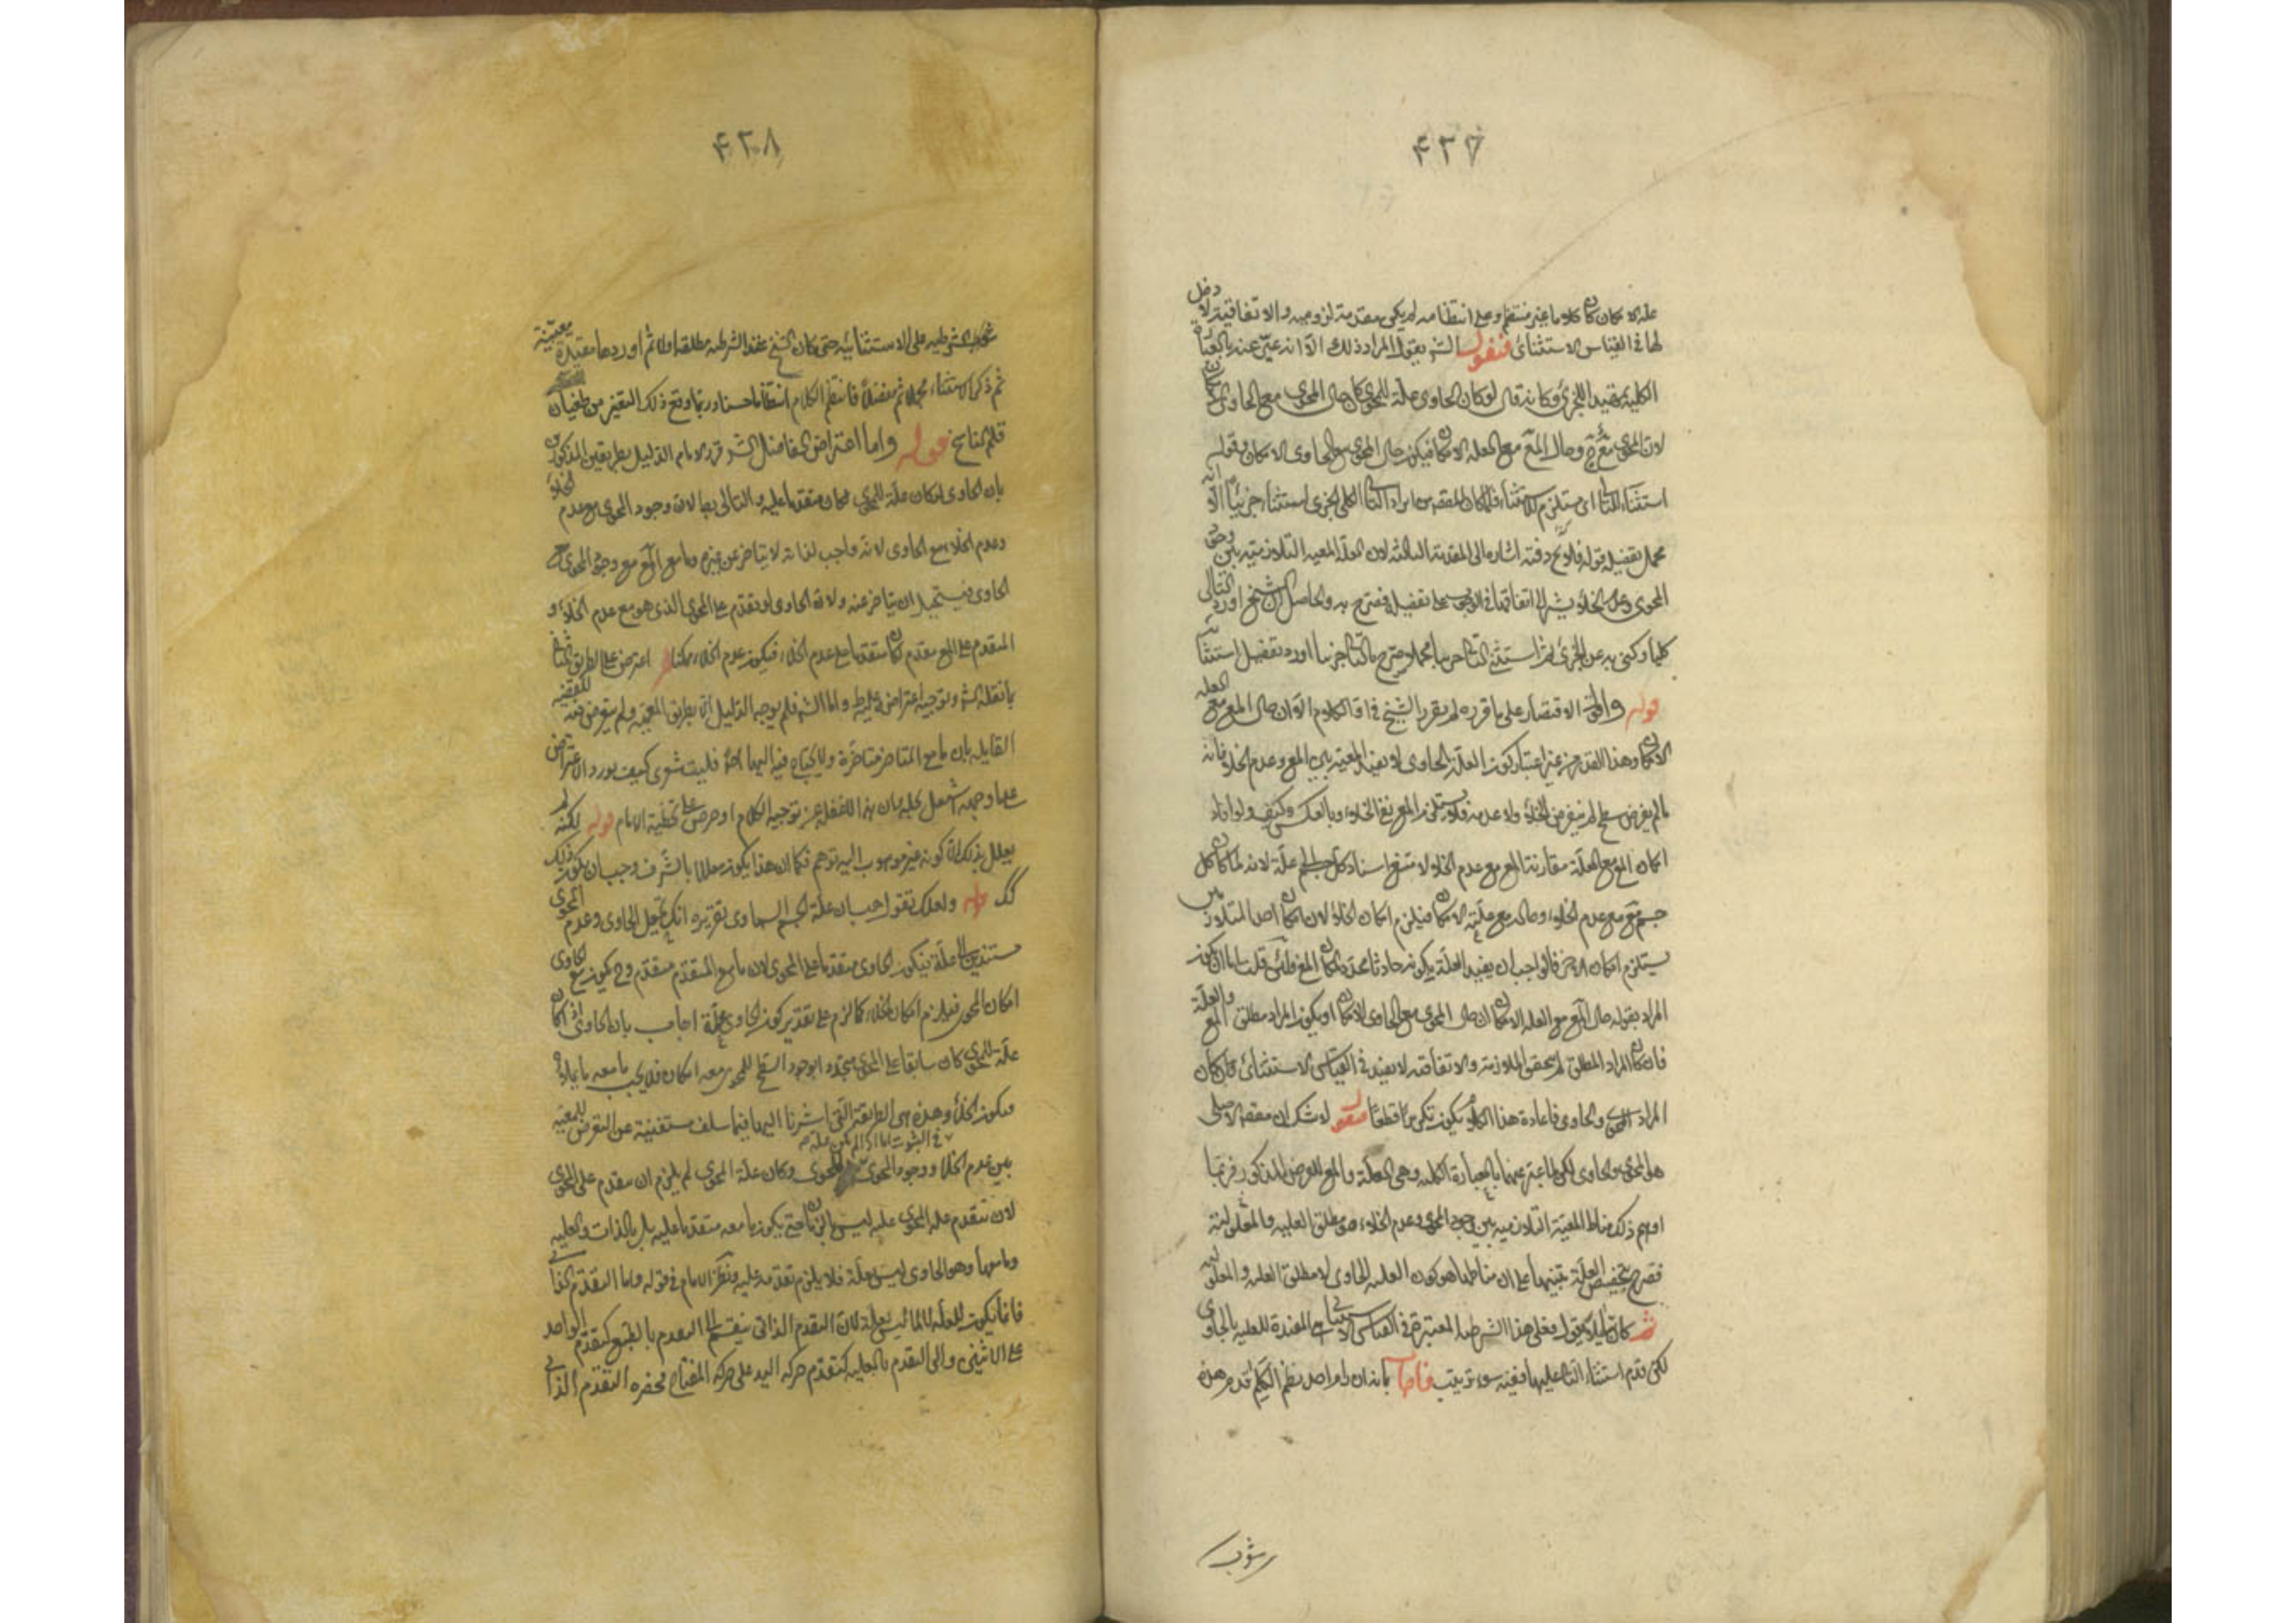 ۴۳۷
علة الامكان كان كلاما غير منتظم وعلى انتظامه لم يكن مقدمة لزومية والاتفاقية لا دخل
لها في القياس الاستثنائي فنقول الشرح يقول المراد ذلك الا انه عبر عنه بالعبارة
الكلية بقيد الجزئي وكانه قال لو كان الحاوى علة للمحوى كان حال المحوى مع الحاوى
لان المحوى مع وحال المع مع العلة الامكان فيكون حال المحوى مع الحاوى الامكان وقوله
استثناء التالي اى يستلزم للاستثناء فلما كان المقصود من ايراد التالى الكلى الجزى استثناء جزئيا الا انه
مجمل تفصيله قوله فلا يخ دفته اشارة الى المقدمة الثالثة لان المعية التلازمية بين وجود
المحوى وعدم الخلاء يشير الى اتفاقهما في الوجوب تفصيله فصرح به والحاصل ان الشيخ اورد التالى
كليا وكنى به عن الجزئى ثم استثنى التالى جزئيا مجملا وصرح بالتالى جزئيا اورد تفصيل استثنائه
قوله والاقتصار على ما قرره لم يقرر الشيخ في اول الكلام الا ان حال المع مع العلة
الامكان وهذا القدر من غير اعتبار كون العلة الحاوى لا يفيد المعية بين المع وعدم الخلاء فانه
ما لم يفرض سطح لم يفرض الخلاء ولا عدمه فلا يستلزم المع نفي الخلاء وبالعكس وكيف ولو افاد
امكان المع مع العلة مقارنة المع مع عدم الخلاء لامتنع اسناد كل جسم الى علة لانه لما كان كل
جسم مع مع عدم الخلاء وحاله مع علته الامكان فيلزم امكان الخلاء لان امكان احد المتلازمين
يستلزم امكان الاخر فالواجب ان يقيد العلة بكونه حاويا محددا لمكان المع ولئن قلت اما ان يكون
المراد بقوله حال المع مع العلة الامكان ان حال المحوى مع الحاوى الامكان او يكون المراد مطلق المع والعلة
فان كان المراد المطلق لم يتحقق الملازمة والاتفاقية لا يفيد في القياس الاستثنائي وان كان
المراد المحوى والحاوى فاعادة هذا الكلام يكون تكريرا قطعا فنقول لا شك ان مقصده الاصلى
هو المحوى والحاوى لكن لما عبر عنهما بالعبارة الكلية وهى العلة والمع للغرض المذكور فربما
اوهم ذلك مناط المعية التلازمية بين وجود المحوى وعدم الخلاء هو مطلق العلية والمعلولية
فصرح بتخصيص العلة تنبيها على ان مناطها هو كون العلة الحاوى لا مطلق العلة والمعلولية
لكن قدم استثناء التالى عليها ففيه سوء ترتيب فاجاب بانه ان اراد نظم الكلام قدم هذه
۴۳۸
الشرطية على الاستثنائية حتى كان الشيخ عقد الشرطية مطلقة اولا ثم اوردها مقيدة معينة
ثم ذكر الاستثناء مجملا ثم مفصلا فانتظم الكلام انتظاما حسنا وربما وقع ذلك التغيير من طغيان
قلم الناسخ قوله واما اعتراض الفاضل الشرح قرر الامام الدليل بطريقين المذكورين
بان الحاوى لو كان علة للمحوى لكان متقدما عليه والتالى بط لان وجود المحوى مع عدم الخلاء
وعدم الخلاء مع الحاوى لانه واجب لذاته لا يتاخر عن غيره وما مع المع مع وجود المحوى مع
الحاوى فيستحيل ان يتاخر عنه ولان الحاوى لو تقدم على المحوى الذى هو مع عدم الخلاء و
المتقدم على المع متقدم لكان متقدما على عدم الخلاء فيكون عدم الخلاء ممكنا اعترض على الطريق الثاني
بما نقله الشرح وتوجيه اعتراض عليه واما الشرح فلم يوجه الدليل الا بطريق المعية ولم يتعرض فيه للقضية
القايلة بان ما مع المتاخر متاخرة ولا يحتاج فيه اليها اصلا فليت شعرى كيف يورد الاعتراض
عليها وجهه لعل كان هذا للغفلة عن توجيه الكلام او حرص على تخطئة الامام قوله لكنه لم
يعلل بذلك كونه غير موهوب اليه توهم فكما ان هذا يكون معللا بالشرف وجب ان يكون ذلك
قوله ولعلك تقول هب ان علة الجسم السماوى تقريره انك تجعل الحاوى وعدم المحوى
مستندين الى علة فيكون الحاوى متقدما على المحوى لان ما مع المتقدم متقدم وح يكون مع الحاوى
امكان المحوى فيلزم امكان الخلاء كما لزم على تقدير كون الحاوى علة اجاب بان الحاوى اذا كان
علة للمحوى كان سابقا على المحوى متحددا بوجود السطح للمحوى معه امكان فلا يجب ما معه ما يملاؤه
فيكون الخلاء وهذه هى الطريقة التى اشرنا اليها فيما سلف مستغنية عن التعرض للمعية
في الثبوت اما اذا لم يكن علة
بين عدم الخلاء ووجود المحوى للمحوى وكان علة المحوى لم يلزم ان يتقدم على المحوى
لان تقدم علة المحوى عليه ليس بالزمان حتى يكون ما معه متقدما عليه بل بالذات والعلية
وما معها وهو الحاوى ليس بعلة فلا يلزم تقدمه عليه وتفكر الامام في قوله واما التقدم الذاتى
فانما يكون للعلة لا لما ليس بعلة لان التقدم الذاتى ينقسم الى التقدم بالطبع كتقدم الواحد
على الاثنين والى التقدم بالعلية كتقدم حركة اليد على حركة المفتاح فحصره التقدم الذاتى